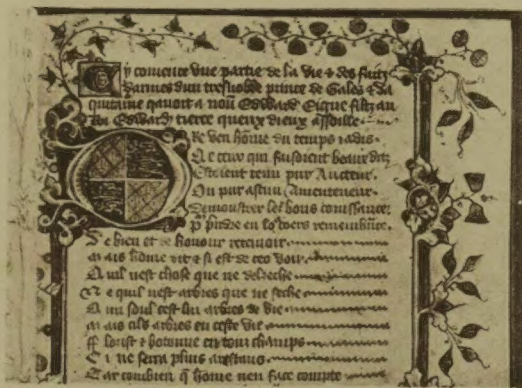 Cy comence une partie de la vie & des faitz
darmes dun tresnoble prince de Gales & da
quitaine qavoit a noun Edward Eigne filz au
Roi Edward tierce queux dieux assoille
Ore veu home du temps iadis
Qe ceux qui faisoient beaux ditz
Estoient tenu pur Aucteur
Ou pur ascun Amenteueur
De moustrer les bons
pur prendre en remembrance
De bien et de honour receiuoir
mais home dit & si est de ceo voir
Quil nest chose que ne deseche
Ne quil nest arbres que ne seche
Qun soul cest li arbres de vie
mais cils arbres en ceste vie
fflorist & botonne en touz champs
Ci ne serra plus arestans
Car combien q home nen face compte